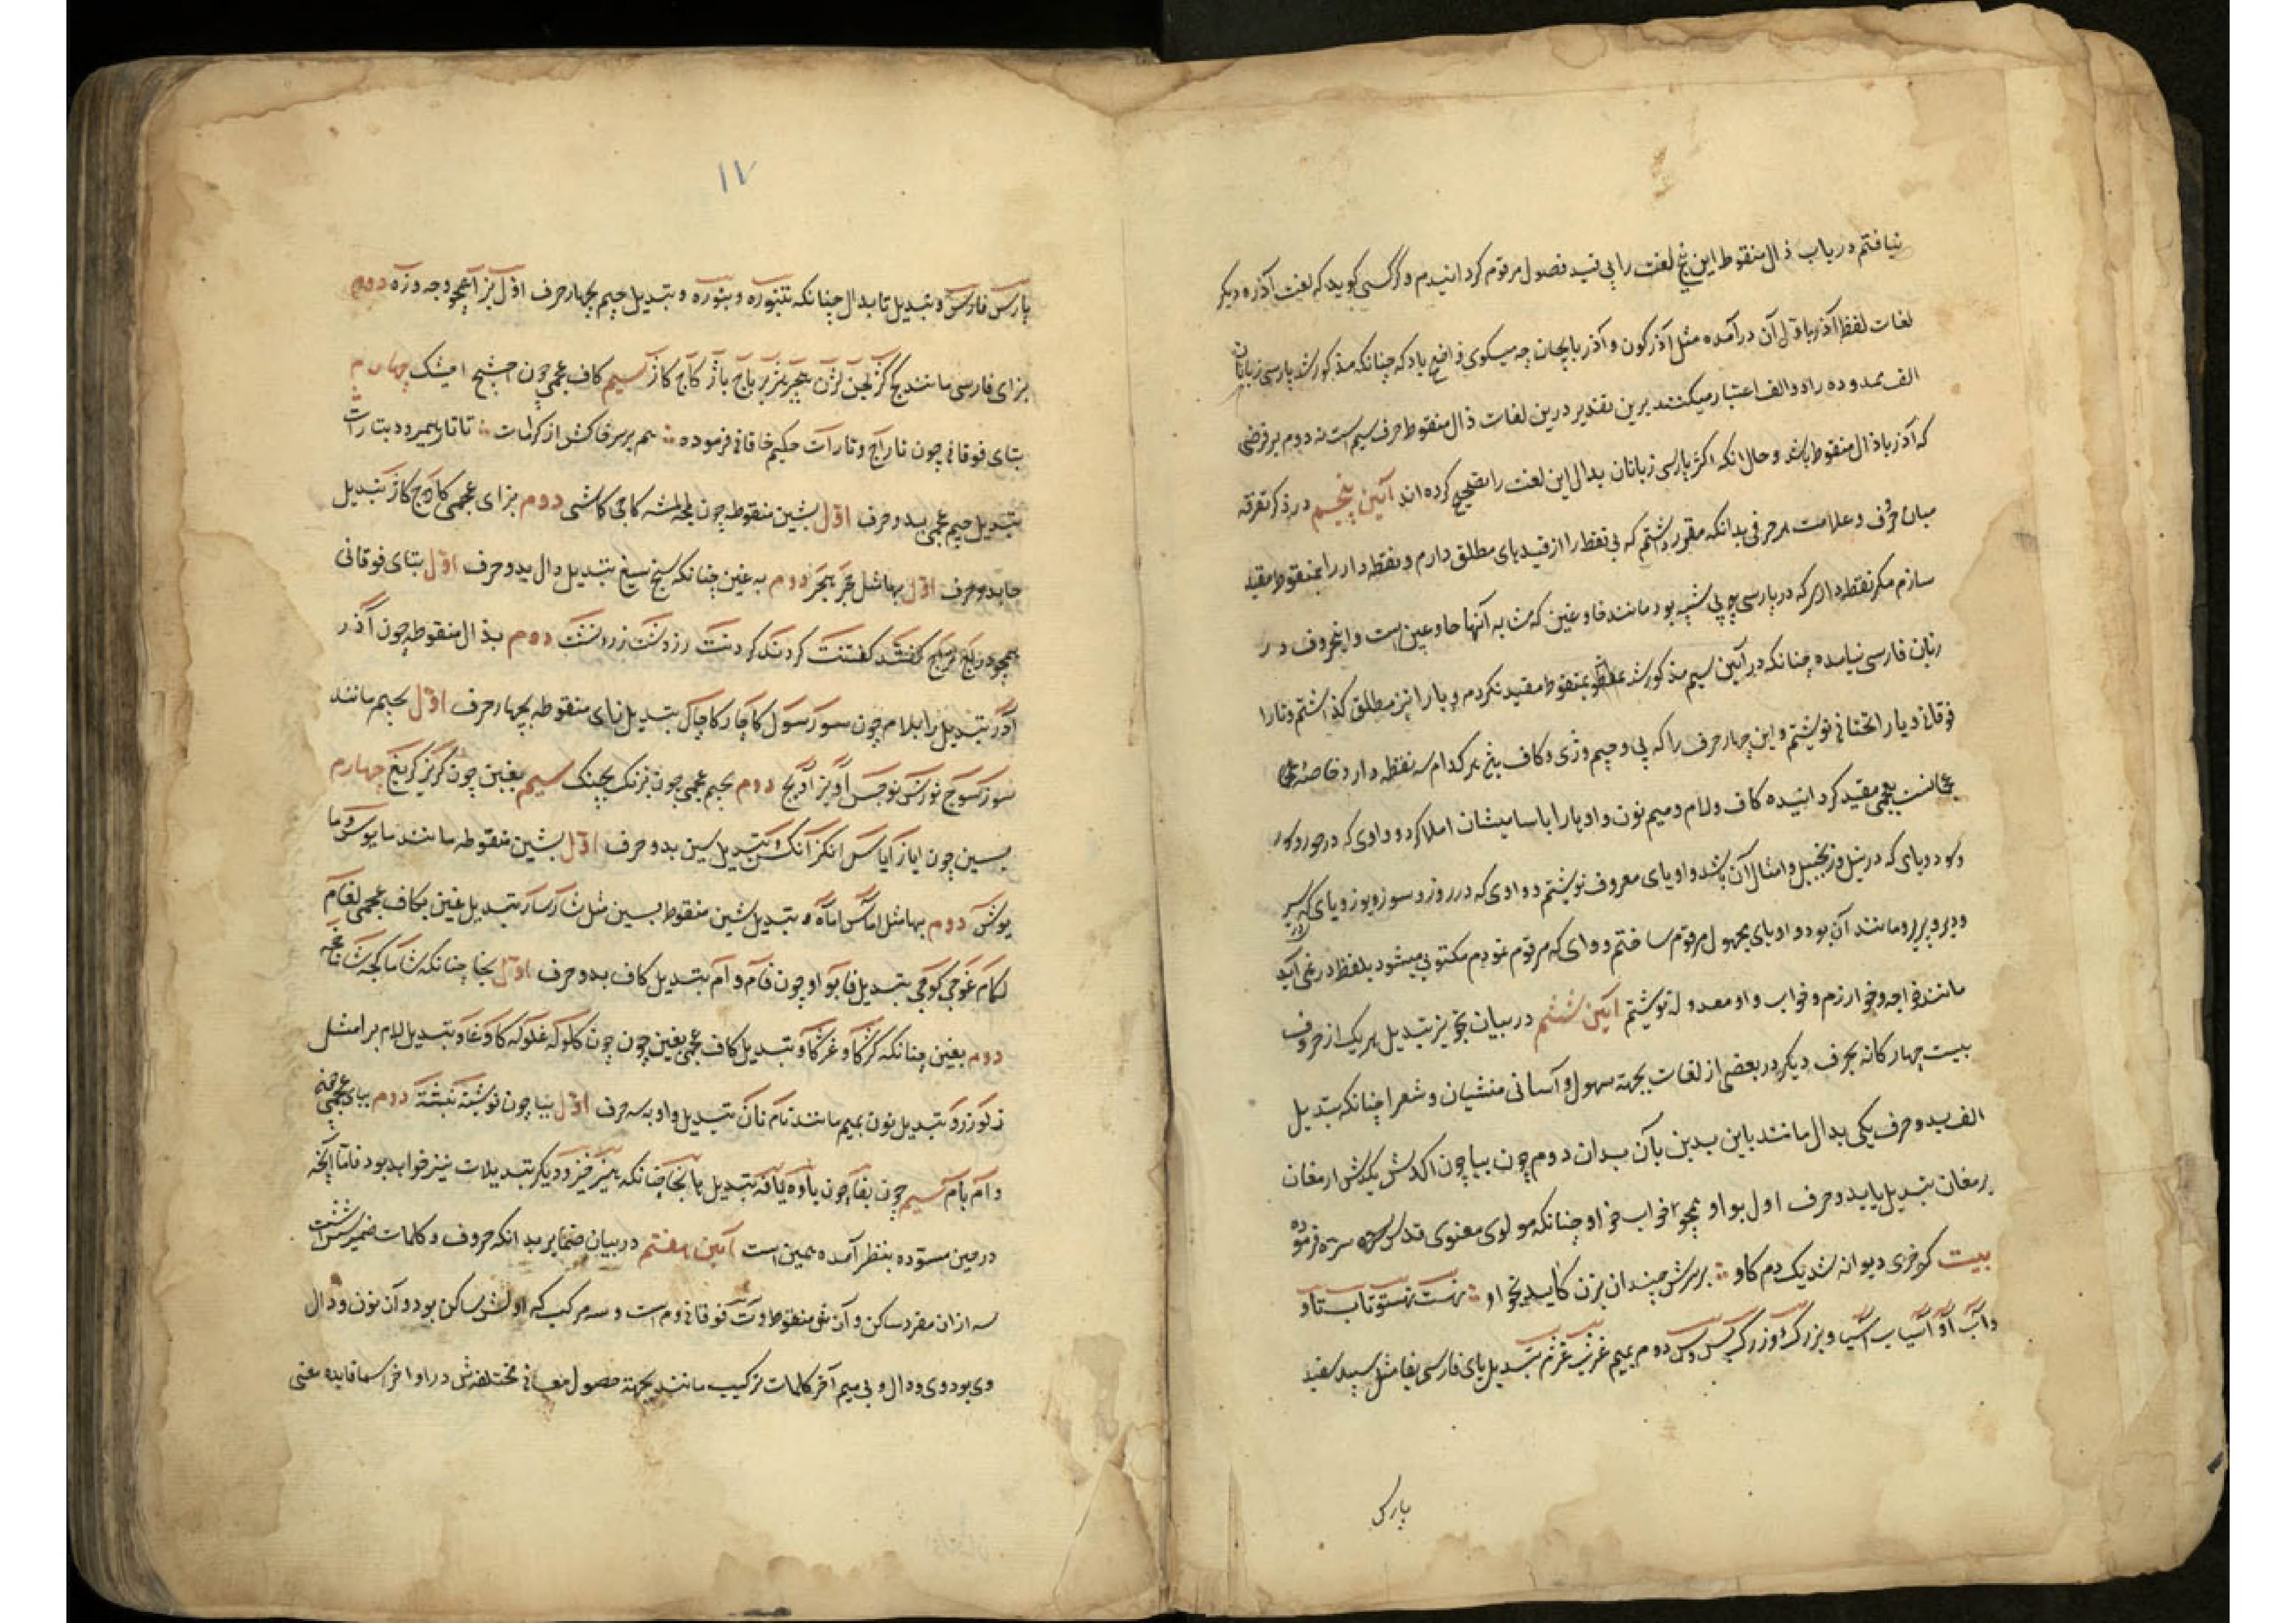 نیافتم در باب ذال منقوط این پنج لغت را بی قید فصول مرقوم گردانیدم و گر کسی گوید که لغت آذر و دیگر
لغات لفظ آذر با ذال آن درآمده مثل آذرگون و آذربایجان چه میگوی واضح باد که چنانکه مذکور شد پارسی زبانان
الف ممدوده را دو الف اعتبار میکنند برین تقدیر درین لغات ذال منقوط حرف سیم است نه دوم بر فرضی
که آذر با ذال منقوط باشد و حال انکه اکثر پارسی زبانان بدال این لغت را تصحیح کرده اند آئین پنجم در ذکر تفرقه
میان حروف و علامت هر حرفی بدانکه مقرر داشتم که بی نقط را از قیدهای مطلق دارم و نقطه دار را بمنقوط مقید
سازم مگر نقطه داری که در پارسی بی شبیه بود مانند فا و غین که مشابه آنها حا و عین است و اینحروف در
زبان فارسی نیامده چنانکه در آئین سیم مذکور شد بمنقوط مقید نکردم و با را نیز مطلق گذاشتم و تا را
فوقانی و یا را تحتانی نوشتم و این چهار حرف را که پی و چیم و ژی و کاف هر کدام سه نقطه دارد خاصهٔ
عجمانست بعجمی مقید گردانیده کاف و لام و میم نون و او و ها را با سامیشان املا کرد و واوی که در حور و کور
و کود و یای که در نیل و زنجبیل و امثال آن باشد واو یای معروف نوشتم و واوی که در روز و سوز و یوز و یای که در سیر
و دیر و پیر و مانند آن بود واو یای مجهول مرقوم ساختم و واوی که مرقوم نمودم مکتوبی میشود بلفظ در نمی آید
مانند خواجه و خوارزم و خواب واو معدوله نوشتم آئین ششم در بیان تجویز تبدیل هر یک از حروف
بیست چهار گانه بحرف دیگر در بعضی از لغات بجهة سهول و آسانی منشیان و شعرا چنانکه تبدیل
الف بدو حرف یکی بدال مانند باین بدین بآن بدان دوم چون بیا چون اکدش یکدش ارمغان
یرمغان تبدیل یا بدو حرف اول بواو همچو خواب خواو چنانکه مولوی معنوی قدس سره فرموده
بیت گر خری دیوانه شد یک دم گاو ؞ بر سرش چندان بزن کاید بخواو ؞ نهست نهستو تاب تاو
و آب آو آسیاب آسیا و بزرگ وزرگ بس وس دوم بمیم غژب غژم تبدیل پای فارسی بفا مثل سپید سفید
پارس
۱۷
پارس فارس و تبدیل تا بدال چنانکه تنبوره و تبدیل جیم بچهار حرف اول بزا همچو وجه وزه دوم
بزای فارسی مانند کج کژ لجن لژن هجیر هژیر باج باژ کاج کاژ سیم کاف عجمی چون اخشیج اخشیک چهارم
بتای فوقانی چون تاراج و تارات حکیم خاقانی فرموده ؞ هم بر سر خاکش از کرامات ؞ تاتار همیرود بتارات
تبدیل چیم عجمی بدو حرف اول بشین منقوطه چون کاچی کاشی دوم بزای عجمی کاچ کاژ تبدیل
خا بدو حرف اول بها مثل خجر هجر دوم به غین چنانکه سیخ سیغ تبدیل دال بدو حرف اول بتای فوقانی
همچو گفتند گفتنت کردند کردنت زردشت زرتشت دوم بذال منقوطه چون آدر
آذر تبدیل را بلام چون سور سول کاچار کاچال تبدیل زای منقوطه بچهار حرف اول بجیم مانند
سوز سوج نوزش نوجش آویز آویج دوم بجیم عجمی چون بزشک بچشک سیم بغین چون گریز گریغ چهارم
بسین چون ایاز ایاس انکز انکس تبدیل سین بدو حرف اول بشین منقوطه مانند
دوم بها مثل اماس اماه و تبدیل شین منقوط بسین مثل شار سار تبدیل غین بکاف عجمی لغام
لگام غوجی گوجی تبدیل فا بواو چون فام و وام تبدیل کاف بدو حرف اول بخا چنانکه شاماکچه شاماخچه
دوم بغین چنانکه کژکاو غژکاو تبدیل کاف عجمی بغین چون گلوله غلوله گاو غاو تبدیل لام برا مثل
زلو زرو تبدیل نون بمیم مانند بام بان تبدیل واو به سه حرف اول ببا چون نوشته نبشته دوم بپای عجمی
وام پام سیم چون بفا چون یاوه یافه تبدیل ها بخا چنانکه هیز خیز و دیگر تبدیلات نیز خواهد بود فاما آنچه
در حین مسوده بنظر آمده همین است آئین هفتم در بیان ضمایر بدانکه حروف و کلمات ضمیر شش است
سه از ان مفرد ساکن و آن شین منقوط و تی فوقانی و م است و سه مرکب که اولش ساکن بود و آن نون و دال
وی بود وی و دال و بی میم آخر کلمات ترکیب مانند بجهة حصول معانی مختلفش در اواخر اسما فایده معنی